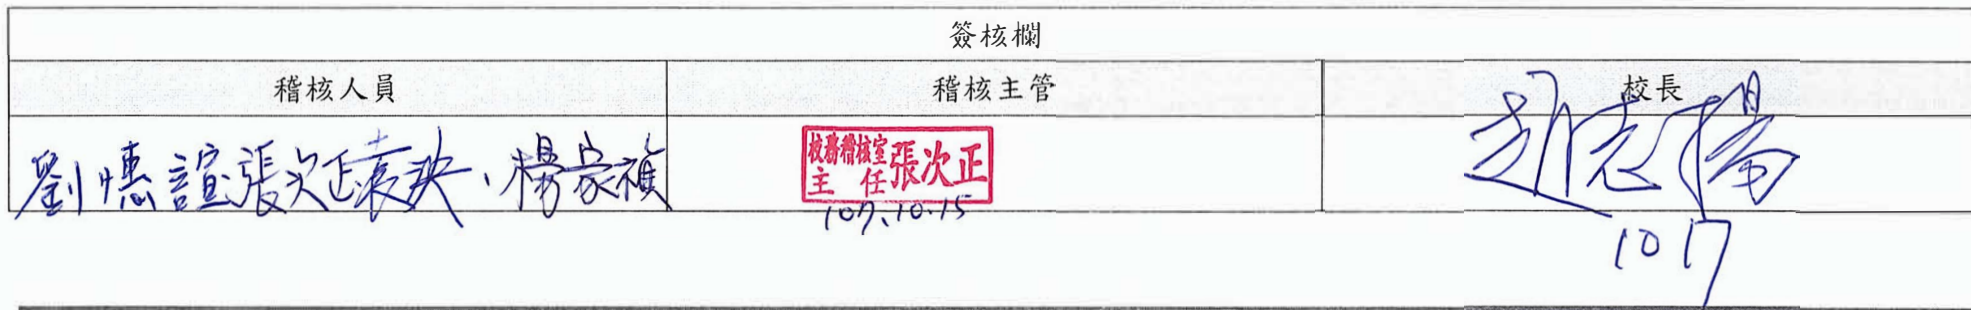 簽核欄
稽核人員 稽核主管 校長
劉惠諠 張次正 袁泱、楊家禎 校務稽核室主任 張次正 趙志揚
107.10.15
10 17